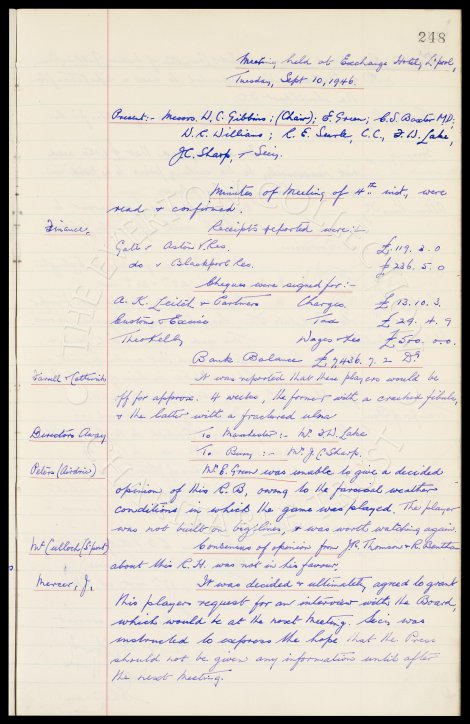 248
Meeting held at Exchange Hotel, L'pool,
Tuesday, Sept 10, 1946.
Present:- Messrs. W. C. Gibbins; (Chair); E. Green; C. S. Baxter MD;
W. R. Williams; R. E. Searle, C.C., F. W. Lake,
J. C. Sharp, & Secy.
Minutes of Meeting of 4th inst., were
read & confirmed.
Finance.
Receipts reported were:-
Gate v Aston V. Res. £119. 3. 0
do v Blackpool Res. £236. 5. 0
Cheques were signed for:-
A. K. Leitch & Partners Charges £13. 10. 3.
Customs & Excise Tax £29. 4. 9
Theo Kelly Wages & Res £500. 0. 0.
Bank Balance £7,436. 7. 2 Dr
Farrell & Catterick
It was reported that these players would be
off for approx. 4 weeks, the former with a cracked fibula,
& the latter with a fractured ulna
Directors Away
To Manchester:- Mr. F. W. Lake
To Bury:- Mr J C Sharp.
Peters (Airdrie)
Mr E. Green was unable to give a decided
opinion of this R.B, owing to the farcical weather
conditions in which the game was played. The player
was not built on big lines, & was worth watching again.
McCulloch (S'port)
Consensus of opinion from J. R. Thomson & R. Bentham
about this R.H. was not in his favour.
Mercer, J.
It was decided & ultimately agreed to grant
this players request for an interview with the Board,
which would be at the next Meeting. Secy was
instructed to express the hope that the Press
should not be given any information until after
the next meeting.